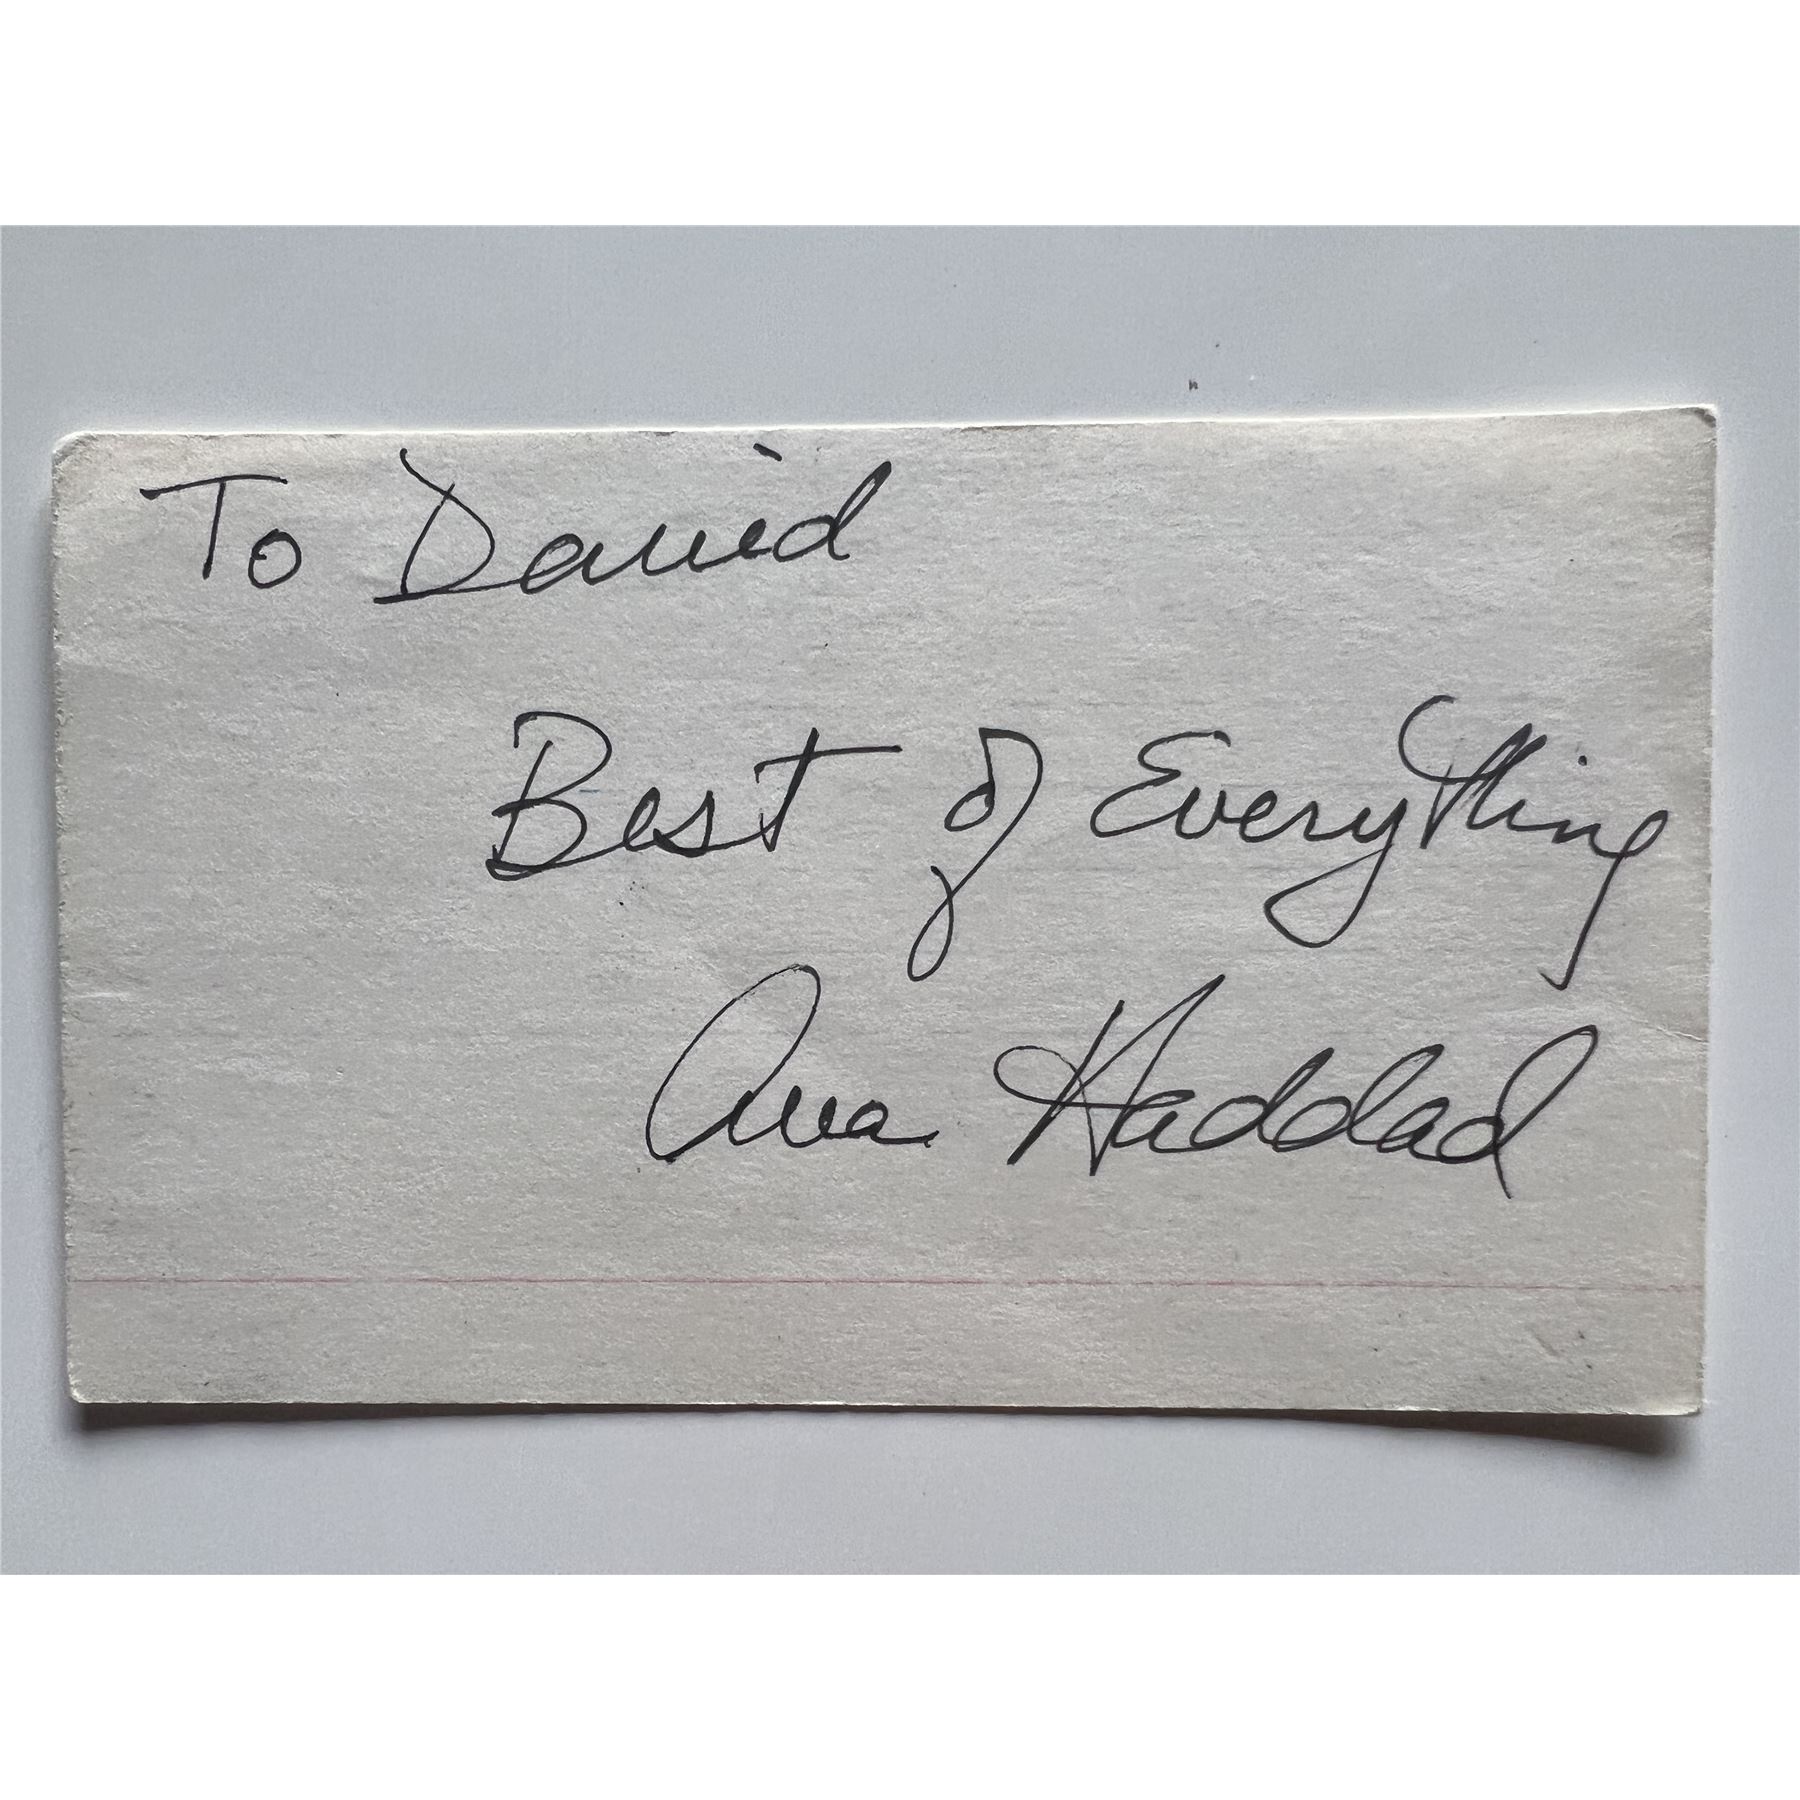 To David
Best of Everything
Ava Haddad